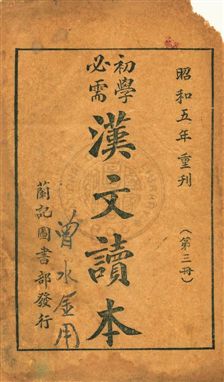 昭和五年重刊
（第三冊）
初學
必需
漢文讀本
曾水金用
蘭記圖書部發行